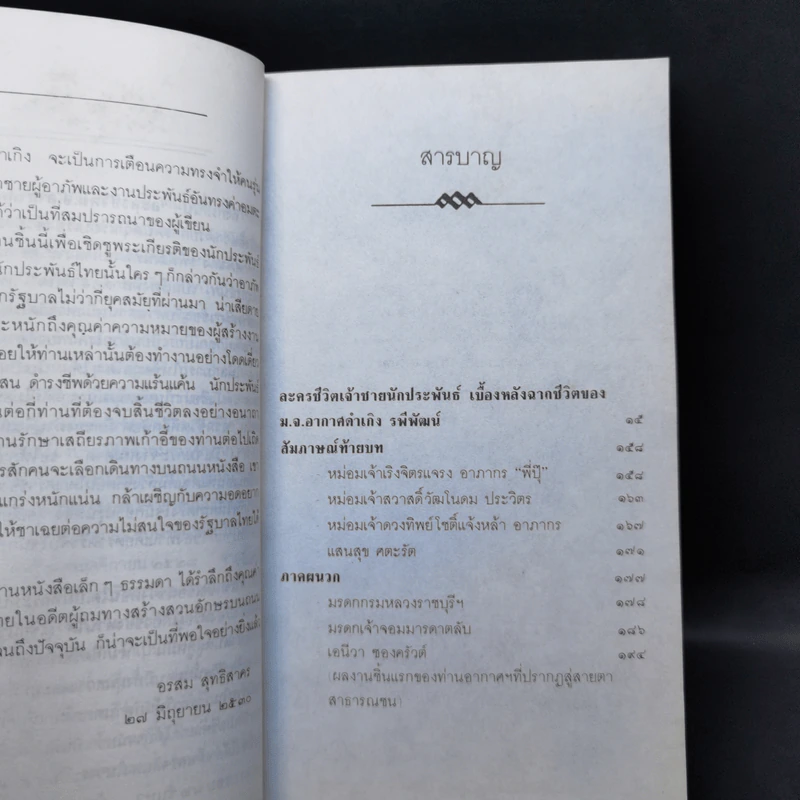 าเกิง จะเป็นการเตือนความทรงจำให้คนรุ่น
าชายผู้อาภัพและงานประพันธ์อันทรงค่าอมตะ
ด้ว่าเป็นที่สมปรารถนาของผู้เขียน
านชิ้นนี้เพื่อเชิดชูพระเกียรติของนักประพันธ์
นักประพันธ์ไทยนั้นใคร ๆ ก็กล่าวกันว่าอาภัพ
กรัฐบาลไม่ว่ากี่ยุคสมัยที่ผ่านมา น่าเสียดาย
ะหนักถึงคุณค่าความหมายของผู้สร้างงาน
อยให้ท่านเหล่านั้นต้องทำงานอย่างโดดเดี่ยว
สน ดำรงชีพด้วยความแร้นแค้น นักประพันธ์
ต่อกี่ท่านที่ต้องจบสิ้นชีวิตลงอย่างอนาถา
านรักษาเสถียรภาพเก้าอี้ของท่านต่อไปเถิด
รสักคนจะเลือกเดินทางบนถนนหนังสือ เขา
แกร่งหนักแน่น กล้าเผชิญกับความอดอยาก
ให้ชาเฉยต่อความไม่สนใจของรัฐบาลไทยได้
านหนังสือเล็ก ๆ ธรรมดา ได้รำลึกถึงคุณค่า
ายในอดีตผู้ถมทางสร้างสวนอักษรบนถนน
นถึงปัจจุบัน ก็น่าจะเป็นที่พอใจอย่างยิ่งแล้ว
อรสม สุทธิสาคร
๒๗ มิถุนายน ๒๕๓๐
สารบาญ
ละครชีวิตเจ้าชายนักประพันธ์ เบื้องหลังฉากชีวิตของ
ม.จ.อากาศดำเกิง รพีพัฒน์ ๑๕
สัมภาษณ์ท้ายบท ๑๕๘
หม่อมเจ้าเริงจิตรแจรง อาภากร "พี่ปุ๊" ๑๕๘
หม่อมเจ้าสวาสดิ์วัฒโนดม ประวิตร ๑๖๓
หม่อมเจ้าดวงทิพย์โชติ์แจ้งหล้า อาภากร ๑๖๗
แสนสุข ศตะรัต ๑๗๑
ภาคผนวก ๑๗๗
มรดกกรมหลวงราชบุรีฯ ๑๗๘
มรดกเจ้าจอมมารดาตลับ ๑๘๖
เอนีวา ซองครัวต์ ๑๙๔
(ผลงานชิ้นแรกของท่านอากาศฯที่ปรากฏสู่สายตา
สาธารณชน)